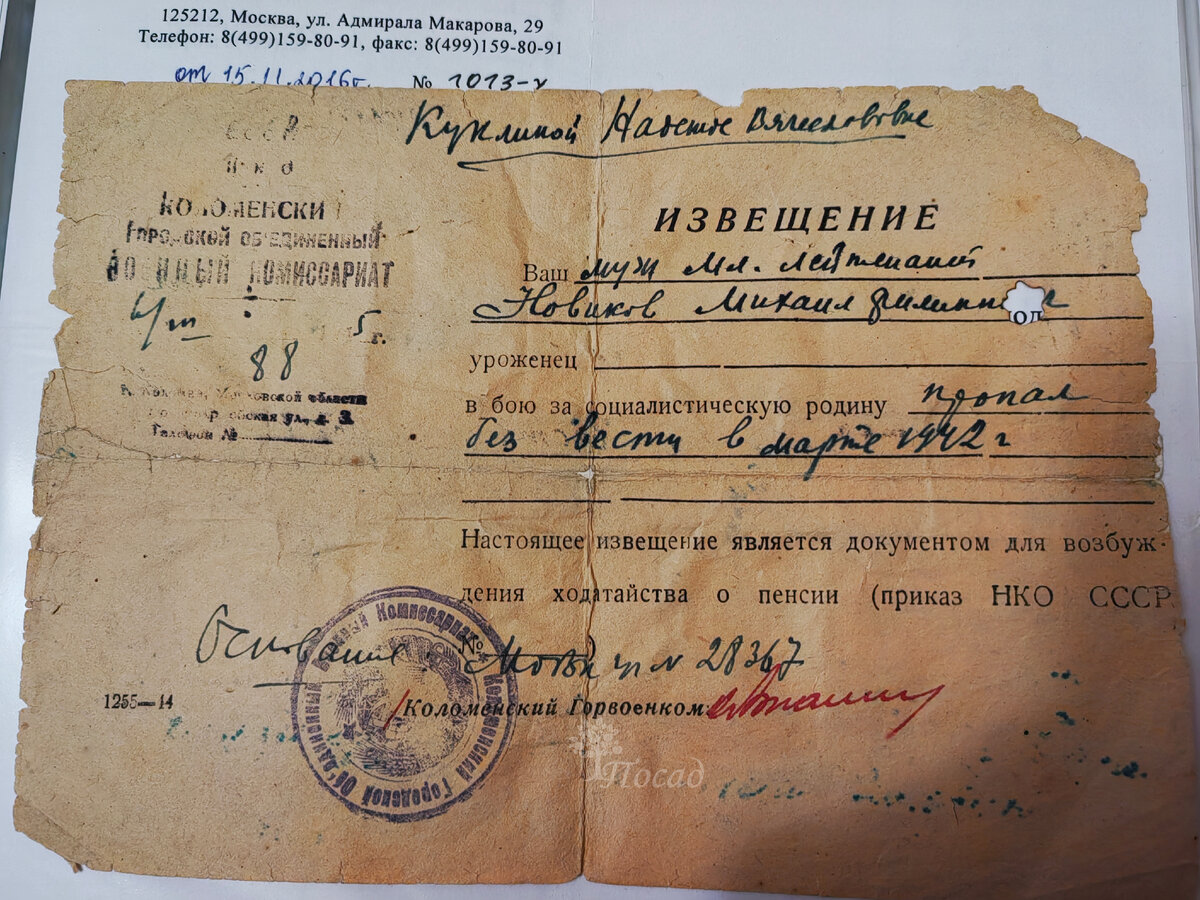 125212, Москва, ул. Адмирала Макарова, 29
Телефон: 8(499)159-80-91, факс: 8(499)159-80-91
от 15.11.2016г. № 1013-у
СССР
НКО
КОЛОМЕНСКИ
ГОРОДСКОЙ ОБЪЕДИНЕННЫЙ
ВОЕННЫЙ КОМИССАРИАТ
5г.
88
г. Коломна, Московской области
ул., д. 3
Телефон №
Куклиной Надежде Вячеславовне
ИЗВЕЩЕНИЕ
Ваш муж мл. лейтенант
Новиков Михаил
од
уроженец
в бою за социалистическую родину пропал
без вести в марте 1942 г
Настоящее извещение является документом для возбуж-
дения ходатайства о пенсии (приказ НКО СССР
№ )
Основание. № 28367
1255—14
Коломенский Горвоенком
Коломенский Городской Объединенный Военный Комиссариат
Посад